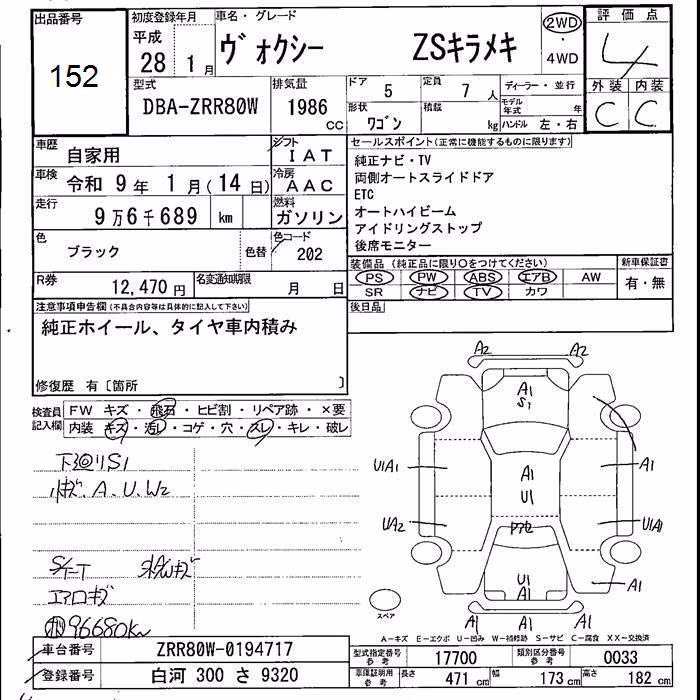 出品番号
152
初度登録年月
平成
28 1 月
車名・グレード
ヴォクシー ZSキラメキ
2WD
・
4WD
評価点
4
外装 内装
C C
型式
DBA-ZRR80W
排気量
1986
CC
ドア
5
定員
7 人
形状
ワゴン
積載
kg
ディーラー・並行
モデル年式 年
ハンドル 左・右
車歴
自家用
シフト
IAT
車検
令和 9 年 1 月(14 日)
冷房
AAC
走行
9 万 6 千 689 km
燃料
ガソリン
色
ブラック
色替
色コード
202
R券
12,470 円
名変通知期限
月 日
セールスポイント(正常に機能するものに限ります)
純正ナビ・TV
両側オートスライドドア
ETC
オートハイビーム
アイドリングストップ
後席モニター
装備品(純正品に限り○をつけてください)
PS PW ABS エアB AW
SR ナビ TV カワ
新車保証書
有・無
後日品
注意事項申告欄(不具合内容等は具体的に記入して下さい)
純正ホイール、タイヤ車内積み
修復歴 有〔箇所 〕
検査員
記入欄
FW キズ・飛石・ヒビ割・リペア跡・×要
内装 キズ・汚レ・コゲ・穴・スレ・キレ・破レ
下廻りS1
小キズ、A、U、W2
エアロキズ
96680km
A2 A2
A1
S1
U1A1
A1
U1
A1
UA2
U1A1
U1
A1
A1
A1 A1
スペア
A-キズ E-エクボ U-凹み W-補修跡 S-サビ C-腐食 XX-交換済
車台番号
ZRR80W-0194717
登録番号
白河 300 さ 9320
型式指定番号
参考
17700
類別区分番号
参考
0033
車庫証明用
参考
長さ 471 cm 幅 173 cm 高さ 182 cm